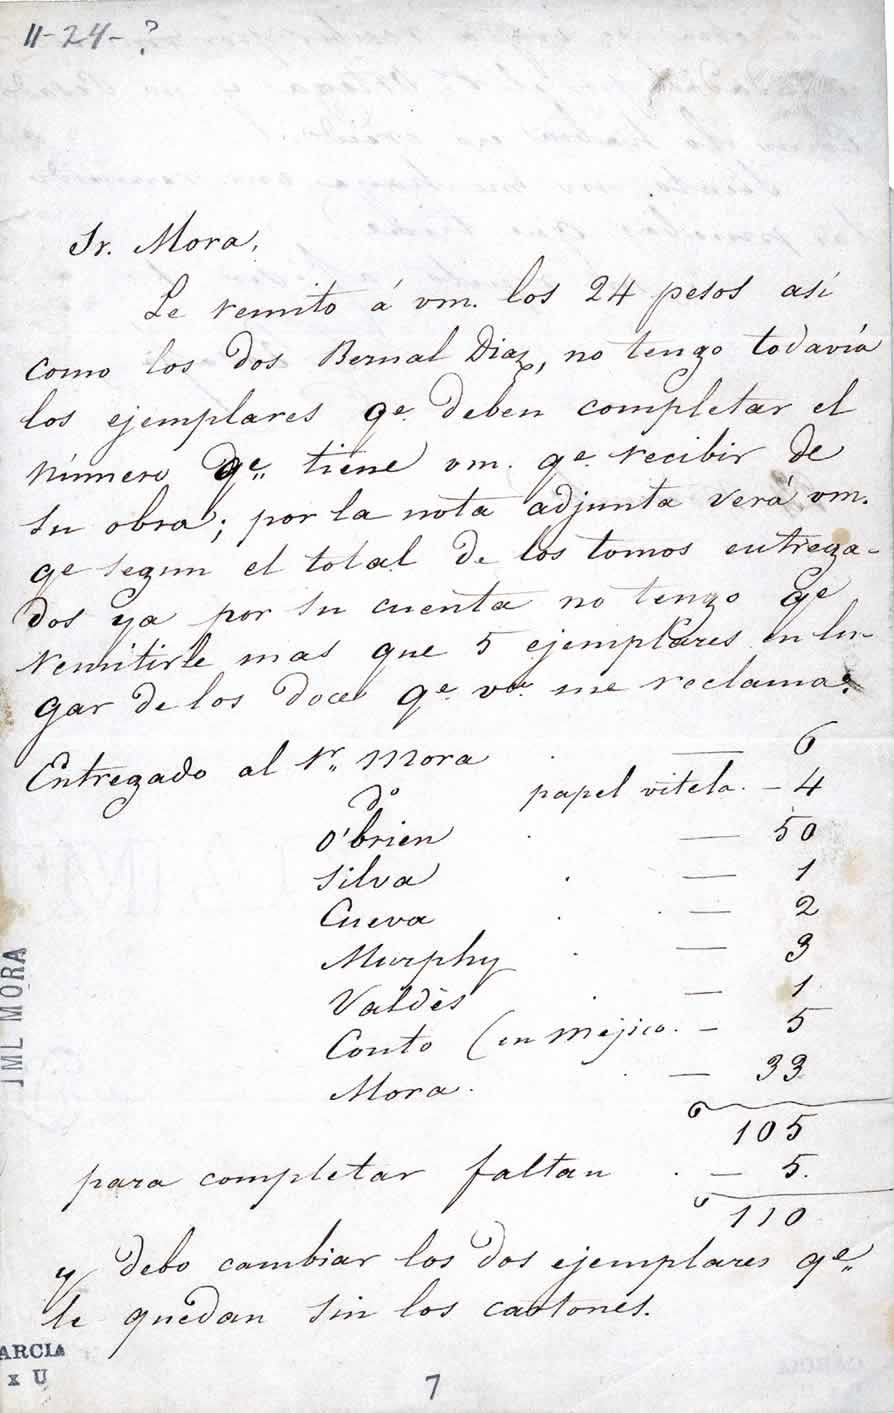 11-24-?
Sr. Mora,
Le remito á vm. los 24 pesos así
como los dos Bernal Diaz, no tengo todavía
los ejemplares qe. deben completar el
número qe. tiene vm. qe. recibir de
su obra; por la nota adjunta verá vm.
qe segun el total de los tomos entrega-
dos ya por su cuenta no tengo qe
remitirle mas que 5 ejemplares en lu-
gar de los doce qe. vm. me reclama.
Entregado al Sr. Mora . — 6
do papel vitela. - 4
O'brien . — 50
Silva . — 1
Cueva . — 2
Murphy . — 3
Valdès . — 1
Couto (en Méjico. - 5
Mora. . — 33
105
para completar faltan . — 5.
110
y debo cambiar los dos ejemplares qe.
le quedan sin los cartones.
JML MORA
ARCIA
x U
7